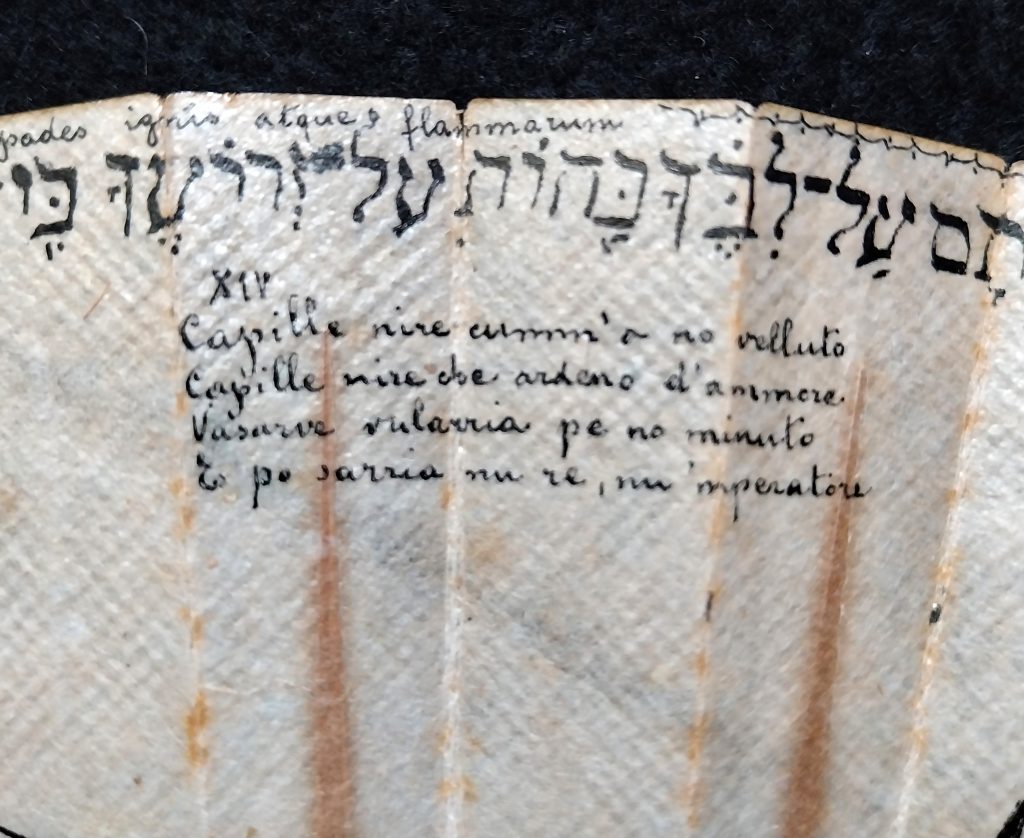 pades ignis atque flammarum
תָם עַל-לִבֶּךָ כַּחוֹת עַל-זְרוֹעֶךָ כִּי
XIV
Capille nire cumm'a no velluto
Capille nire che ardeno d'ammore
Vasarve vularria pe no minuto
E po sarria nu re, nu 'mperatore